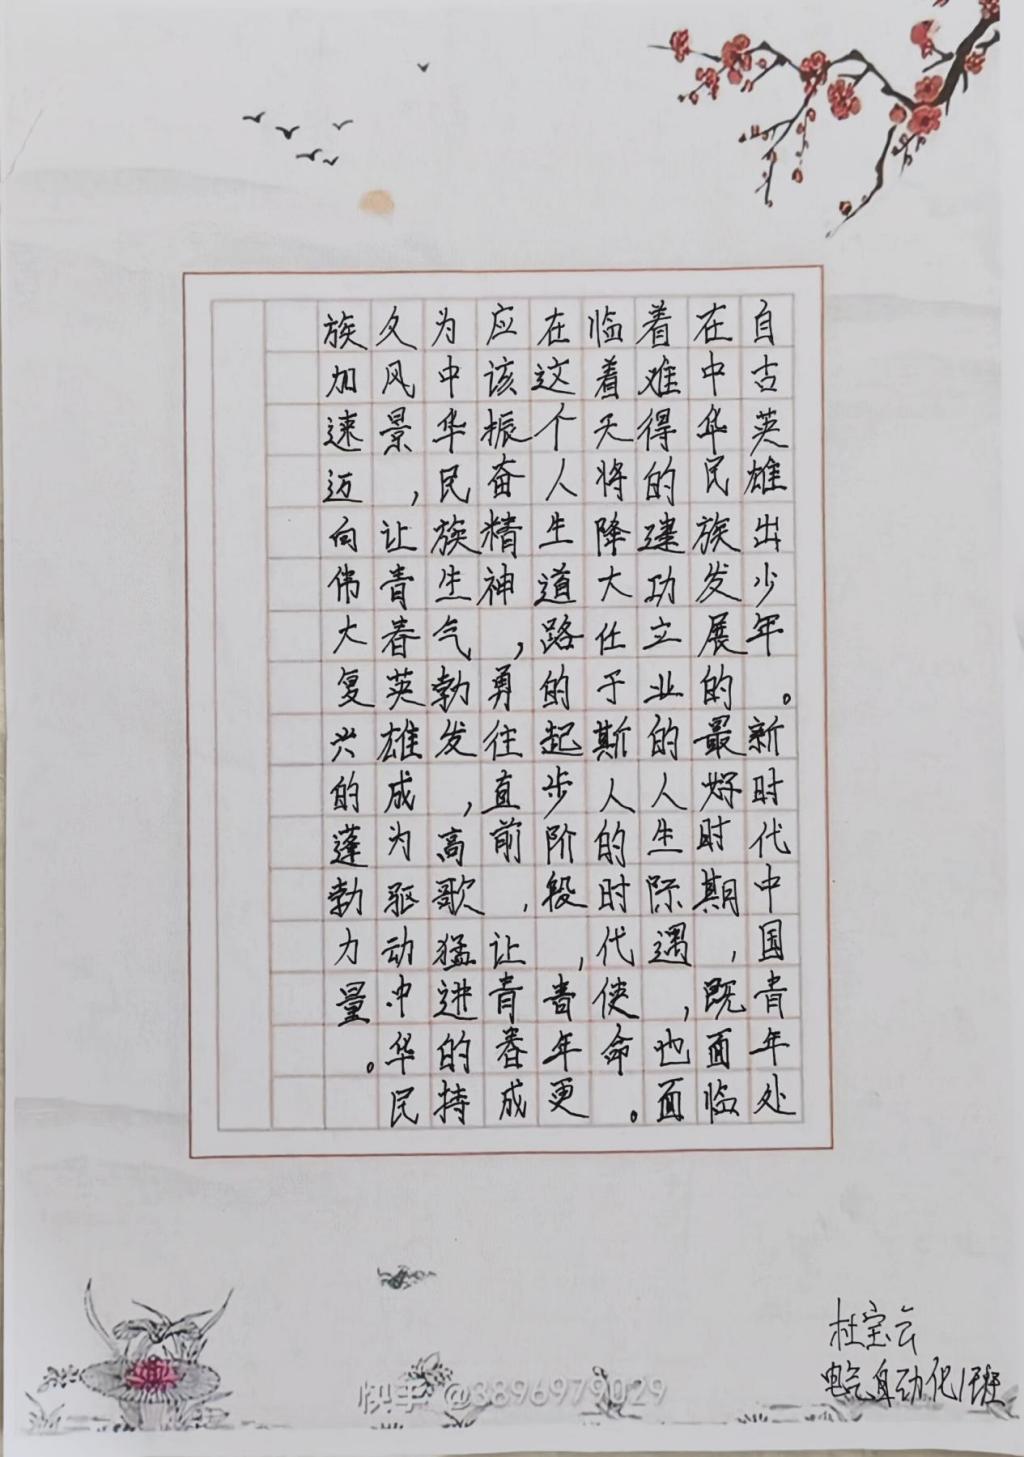 自古英雄出少年。新时代中国青年处
在中华民族发展的最好时期，既面临
着难得的建功立业的人生际遇，也面
临着天将降大任于斯人的时代使命。
在这个人生道路的起步阶段，青年更
应该振奋精神，勇往直前，让青春成
为中华民族生气勃发，高歌猛进的持
久风景，让青春英雄成为驱动中华民
族加速迈向伟大复兴的蓬勃力量。
杜宝云
电气自动化1班
快手 @3896979029